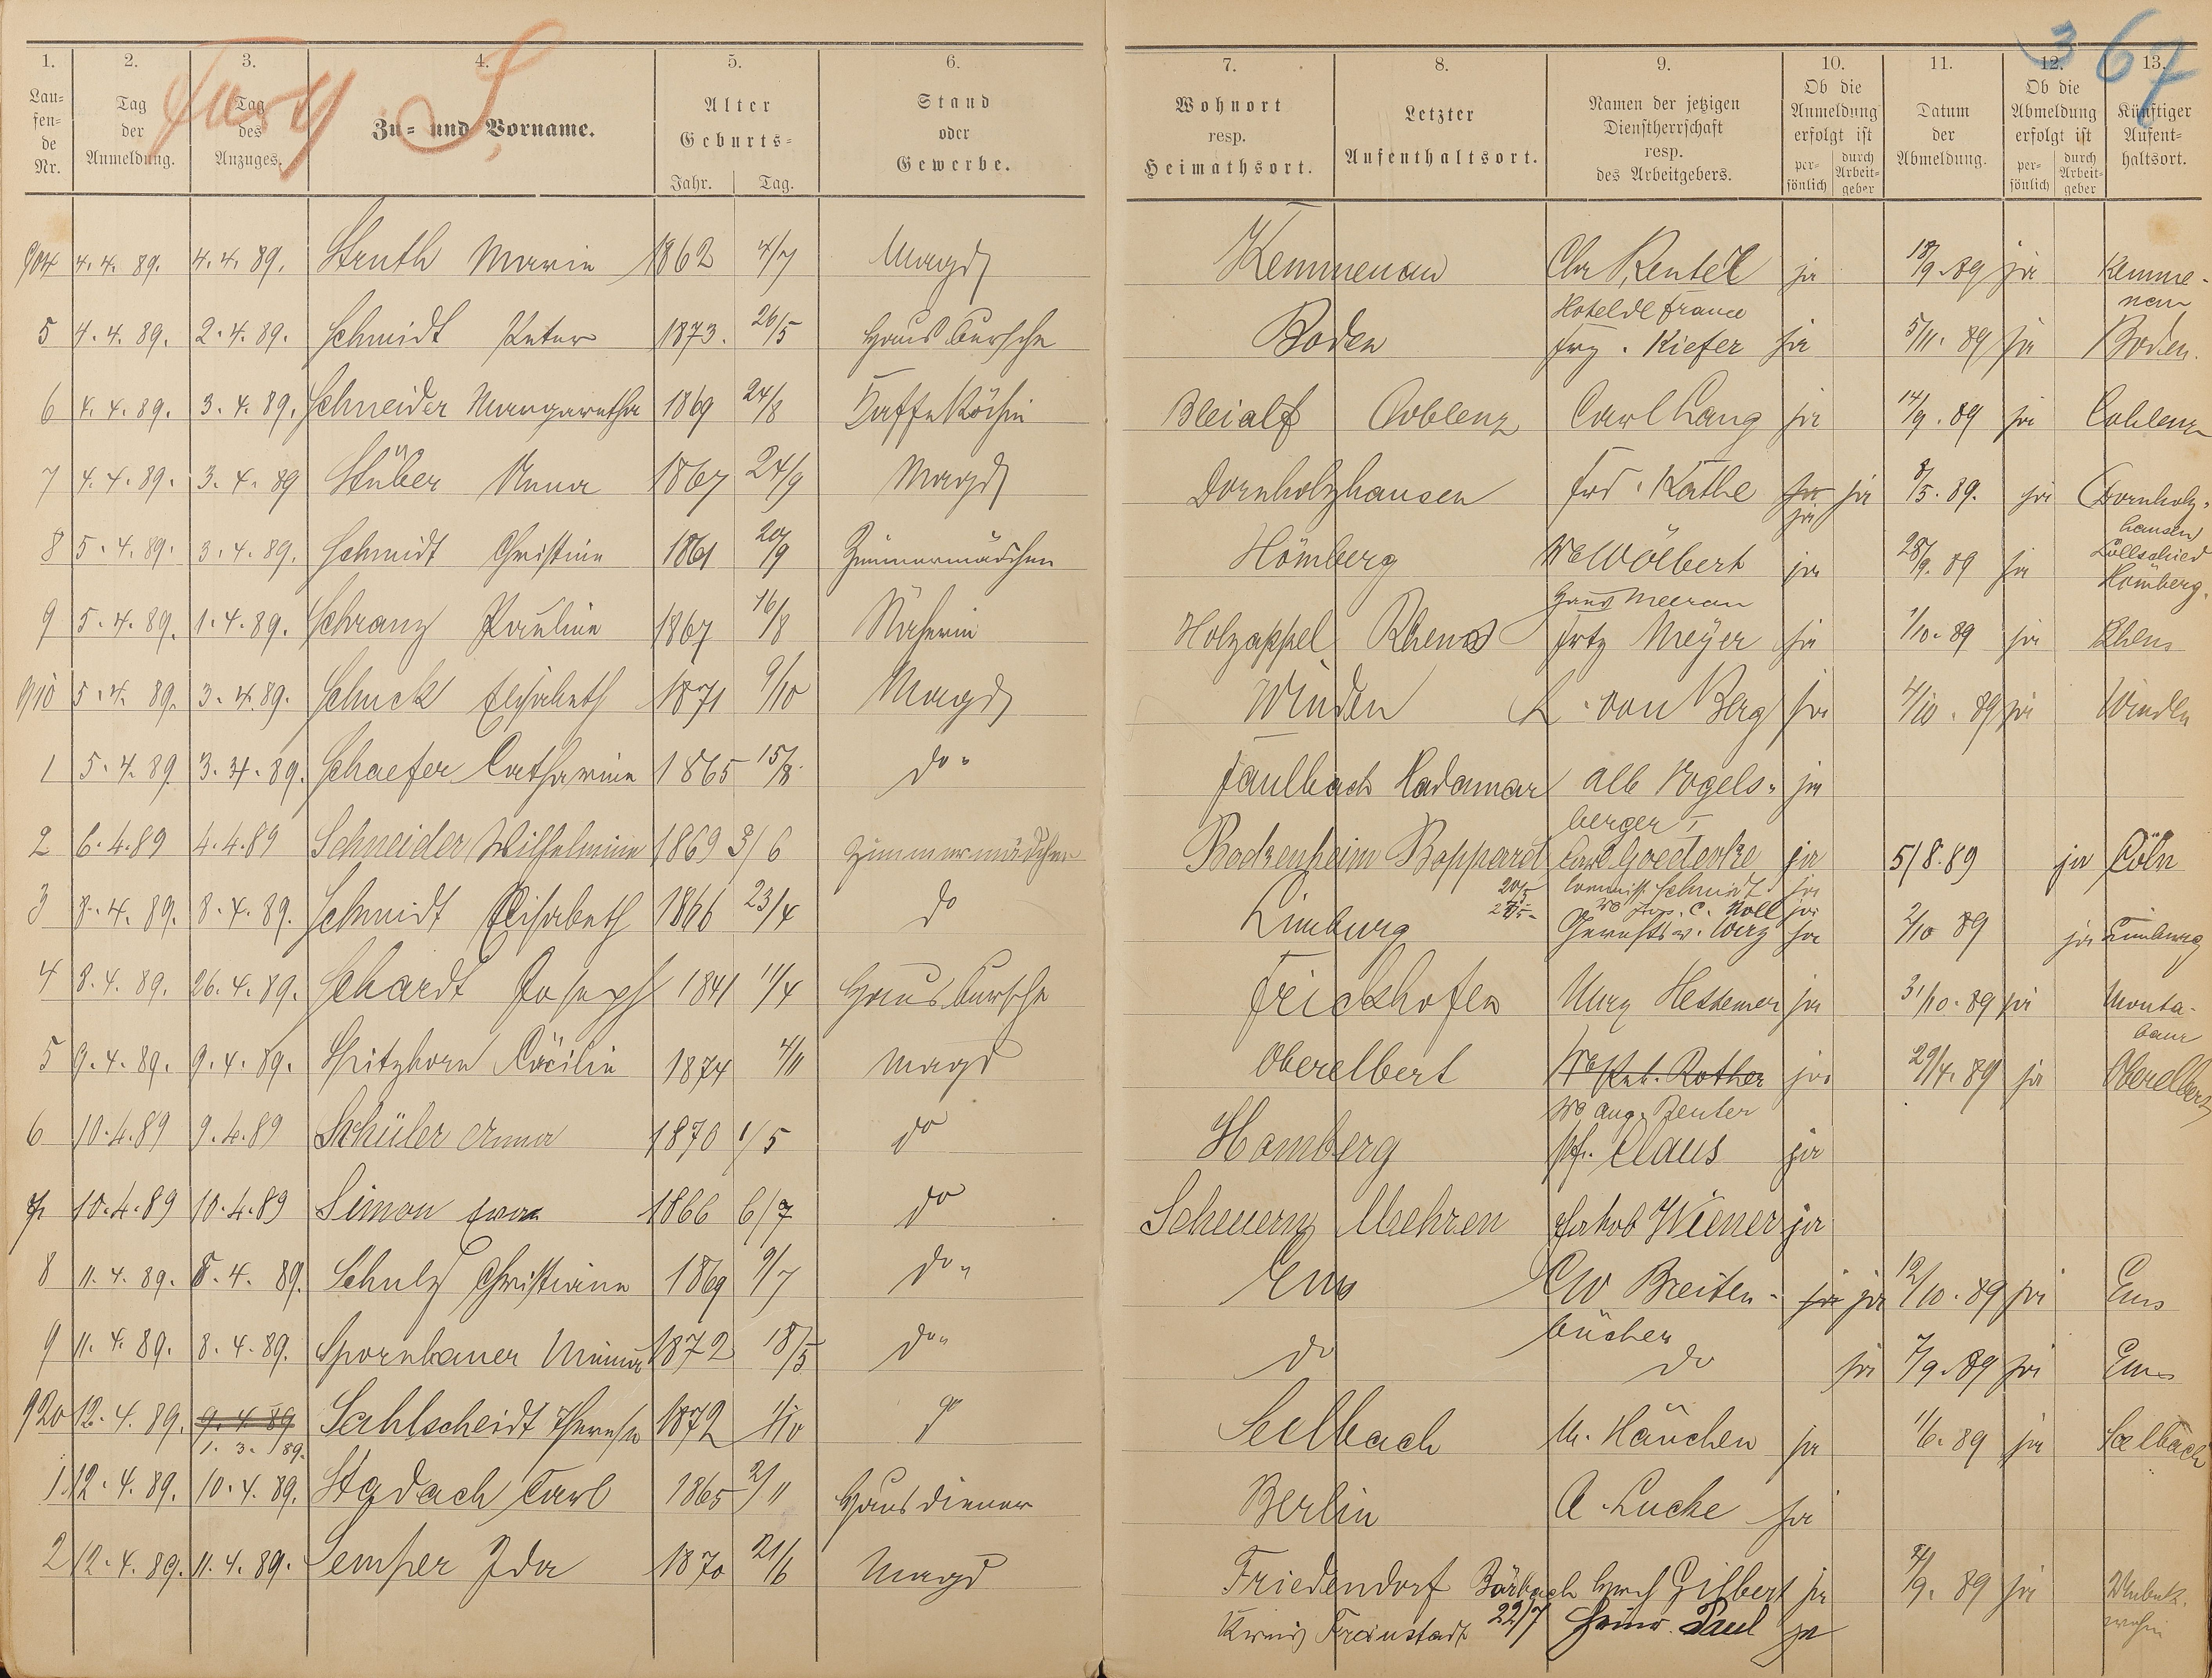 367
S.
1. 2. 3. 4. 5. 6. 7. 8. 9. 10. 11. 12. 13.
Lau-fen-de Nr. Tag der Anmeldung. Tag des Anzuges. Zu- und Vorname. Alter Geburts- Jahr. Tag. Stand oder Gewerbe. Wohnort resp. Heimathsort. Letzter Aufenthaltsort. Namen der jetzigen Dienstherrschaft resp. des Arbeitgebers. Ob die Anmeldung erfolgt ist persönlich durch Arbeitgeber Datum der Abmeldung. Ob die Abmeldung erfolgt ist persönlich durch Arbeitgeber Künftiger Aufenthaltsort.
904 4.4.89. 4.4.89. Struth Marie 1862 4/7 Magd Kemmenau Chr Rentel ja 18/9.89 ja Kemme-nau
5 4.4.89. 2.4.89. Schmidt Peter 1873. 26/5 Hausbursche Boden Hotel de france Frz. Kiefer ja 5/11.89 ja Boden.
6 4.4.89. 3.4.89. Schneider Margaretha 1869 24/8 Kaffeköchin Bleialf Coblenz Carl Lang ja 14/9.89 ja Coblenz
7 4.4.89. 3.4.89 Stüber Anna 1867 24/9 Magd Dornholzhausen Frd. Käthe ja ja 8/5.89. ja Dornholz-hausen
8 5.4.89. 3.4.89. Schmidt Christine 1861 20/9 Zimmermädchen Hömberg We Wölbert ja 28/9.89 ja Hömberg.
9 5.4.89. 1.4.89. Schranz Pauline 1867 16/8 Näherin Holzappel Rhens Haus Meeran Fritz Meyer ja 1/10.89 ja Rhens
910 5.4.89. 3.4.89. Schuck Elisabeth 1871 9/10 Magd Winden L. von Berg ja 4/10.89 ja Winden
1 5.4.89. 3.4.89. Schaefer Catharine 1865 15/8. do. Faulbach Hadamar Alb Vogels-berger I ja
2 6.4.89 4.4.89 Schneider Wilhelmine 1869 3/6 Zimmermädchen Bockenheim Boppard Carl Goedecke ja 5/8.89 ja Cöln
3 8.4.89. 8.4.89. Schmidt Elisabeth 1866 23/4 do Limburg 20/5 Schmidt ja
C. Noll ja
ja 2/10 89 ja Limburg
4 8.4.89. 26.4.89. Schardt Joseph 1841 11/4 Hausbursche Frickhofen ja 31/10.89 ja Monta-baur
5 9.4.89. 9.4.89. Spitzhorn Cäcilie 1874 4/11 Magd Oberelbert We Pet. Rother ja 29/4.89 ja Oberelbert
6 10.4.89 9.4.89 Schüler Anna 1870 1/5 do Homberg We Aug. Reuter
Ph. Claus ja
7 10.4.89 10.4.89 Simon Eva 1866 6/7 do Scheuern Mehren Jakob Wiener ja
8 11.4.89. 8.4.89. Schulz Christiane 1869 9/7 do " Ems CW Breiten-bücher ja ja 12/10.89 ja Ems
9 11.4.89. 8.4.89. Spornhauer Minna 1872 18/5 do " do do ja 7/9.89 ja Ems
920 12.4.89. 9.4.89 1.3.89. Sahlscheidt Therese 1872 1/10 do Seelbach M. Häuchen ja 1/6.89 ja Seelbach
1 12.4.89. 10.4.89. Stadach Carl 1865 2/11 Hausdiener Berlin A. Lucke ja
2 12.4.89. 11.4.89. Semper Ida 1870 21/6 Magd Friedendorf Bärbach Gilbert ja 4/9.89 ja Unbek. wohin
Kreis Fraustadt 22/7 Heinr. Paul ja